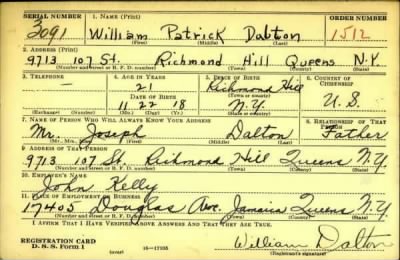 SERIAL NUMBER 1. NAME (Print) ORDER NUMBER
3091 William Patrick Dalton 1512
(First) (Middle) (Last)
2. ADDRESS (Print)
9713 107 St. Richmond Hill Queens N.Y.
(Number and street or R. F. D. number) (Town) (County) (State)
3. TELEPHONE 4. AGE IN YEARS 5. PLACE OF BIRTH 6. COUNTRY OF CITIZENSHIP
— 21 Richmond Hill
DATE OF BIRTH (Town or county)
11 22 18 N.Y. U.S.
(Exchange) (Number) (Mo.) (Day) (Yr.) (State or country)
7. NAME OF PERSON WHO WILL ALWAYS KNOW YOUR ADDRESS 8. RELATIONSHIP OF THAT PERSON
Mr. Joseph Dalton Father
(Mr., Mrs., Miss) (First) (Middle) (Last)
9. ADDRESS OF THAT PERSON
9713 107 St. Richmond Hill Queens N.Y.
(Number and street or R. F. D. number) (Town) (County) (State)
10. EMPLOYER'S NAME
John Kelly
11. PLACE OF EMPLOYMENT OR BUSINESS
17405 Douglas Ave. Jamaica Queens N.Y.
(Number and street or R. F. D. number) (Town) (County) (State)
I AFFIRM THAT I HAVE VERIFIED ABOVE ANSWERS AND THAT THEY ARE TRUE.
REGISTRATION CARD
D. S. S. Form 1 (over) 16—17105 William Dalton
(Registrant's signature)